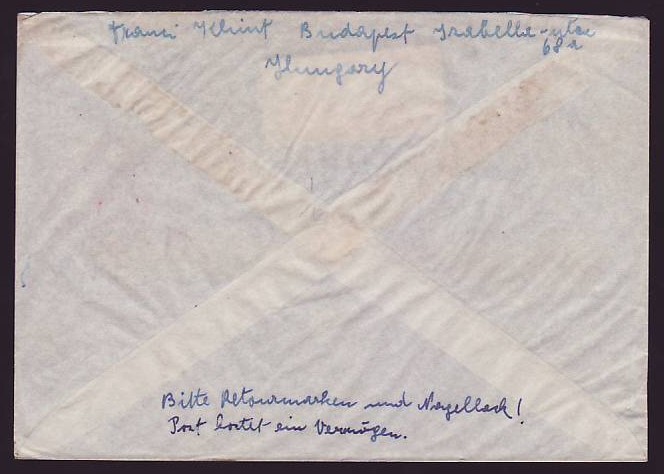 Franci Klint Budapest Izabella-utca
68a
Hungary
Bitte Retourmarken und Nagellack!
Post kostet ein Vermögen.